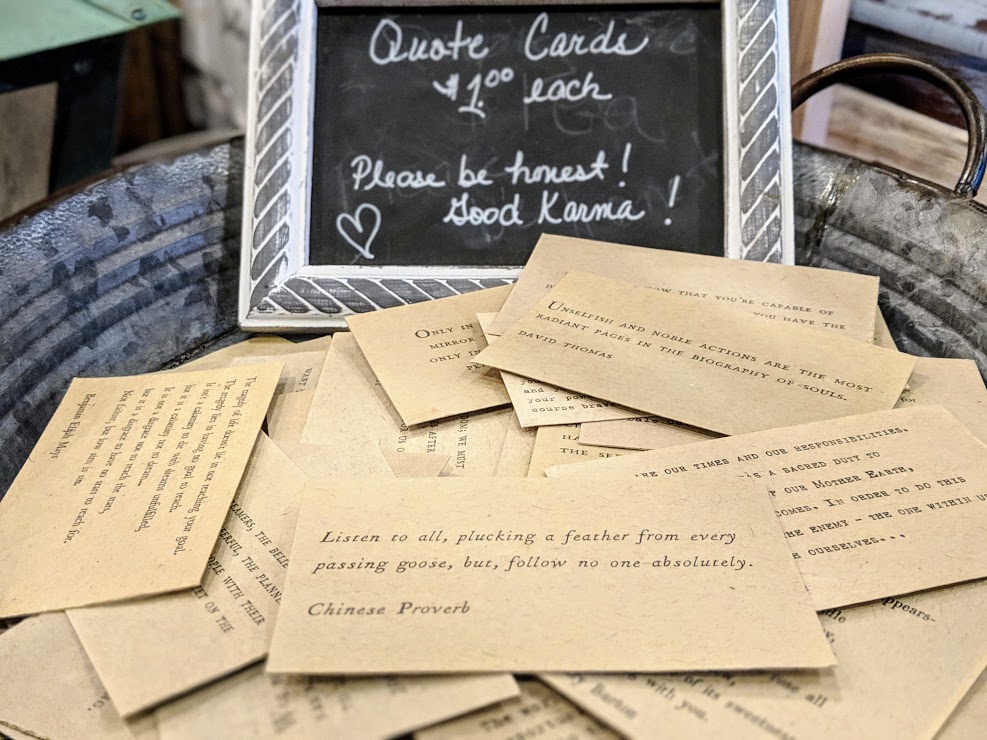 Quote Cards
$1.00 each
Please be honest!
Good Karma!
THAT YOU'RE CAPABLE OF
YOU HAVE THE
ONLY IN
MIRROR,
ONLY IN
UNSELFISH AND NOBLE ACTIONS ARE THE MOST
RADIANT PAGES IN THE BIOGRAPHY OF SOULS.
DAVID THOMAS
and
your
course
The tragedy of life doesn't lie in not reaching your goal.
The tragedy lies in having no goal to reach.
It isn't a calamity to die with dreams unfulfilled,
but it is a calamity not to dream...
It is not a disgrace not to reach the stars,
but it is a disgrace to have no stars to reach for.
Not failure, but low aim is sin.
Benjamin Elijah Mays
WE MUST
AFTER
ARE OUR TIMES AND OUR RESPONSIBILITIES.
IS A SACRED DUTY TO
OUR MOTHER EARTH,
COMES. IN ORDER TO DO THIS
THE ENEMY - THE ONE WITHIN US
OURSELVES...
THE BELIE
THE PLANNE
PEOPLE WITH THEIR
ON THE
Listen to all, plucking a feather from every
passing goose, but, follow no one absolutely.
Chinese Proverb
all
of its sweetness
with you.
Burton